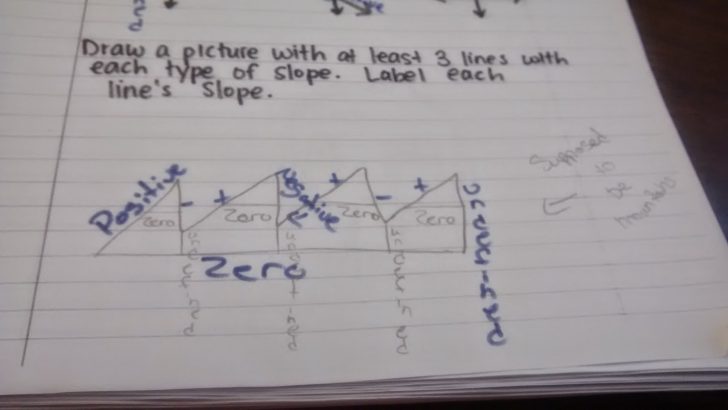 Draw a picture with at least 3 lines with
each type of slope. Label each
line's Slope.
Positive
-
+
Negative
+
-
+
Zero
Zero
Zero
Zero
Zero
Supposed
to
be
mountains